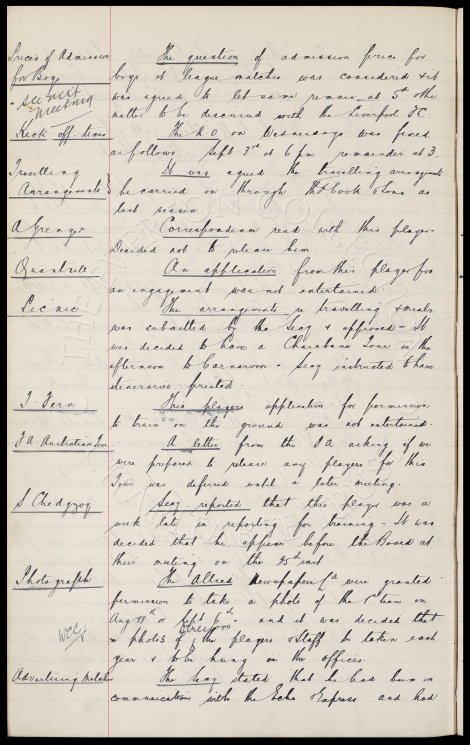 Prices of Admission
for Boys
- see next
meeting
The question of admission price for
boys at league matches was considered & it
was agreed to let same remain at 5d & the
matter to be discussed with the Liverpool FC.
Kick off times
The K O on Wednesdays was fixed
as follows Sept 3rd at 6 pm remainder at 3.
Travelling
Arrangements
It was agreed the travelling arrangements
be carried on through Thos Cook & Sons as
last season
A Grenyer
Correspondence read with this player.
Decided not to release him.
Quantrill
An application from this player for
an engagement was not entertained.
Picnic
The arrangements re travelling & meals
was submitted by the Secy & approved - It
was decided to have a Charabanc Tour in the
afternoon to Carnarvon - Secy instructed to have
itineraries printed.
T. Fern
This players application for permission
to train on the ground was not entertained.
F A Australian Tour
A letter from the F A asking if we
were prepared to release any players for this
Tour was deferred until a later meeting.
S Chedgzoy
Secy reported that this player was a
week late in reporting for training - It was
decided that he appear before the Board at
their meeting on the 25th inst.
Photograph
The Allied Newspapers were granted
permission to take a photo of the 1st team on
Aug 18th or Sept 6th. and it was decided that
Directors
a photo of the players & staff be taken each
year & to be hung in the offices.
WCC
Advertising Matches
The Secy stated that he had been in
communication with the Echo & Express and had